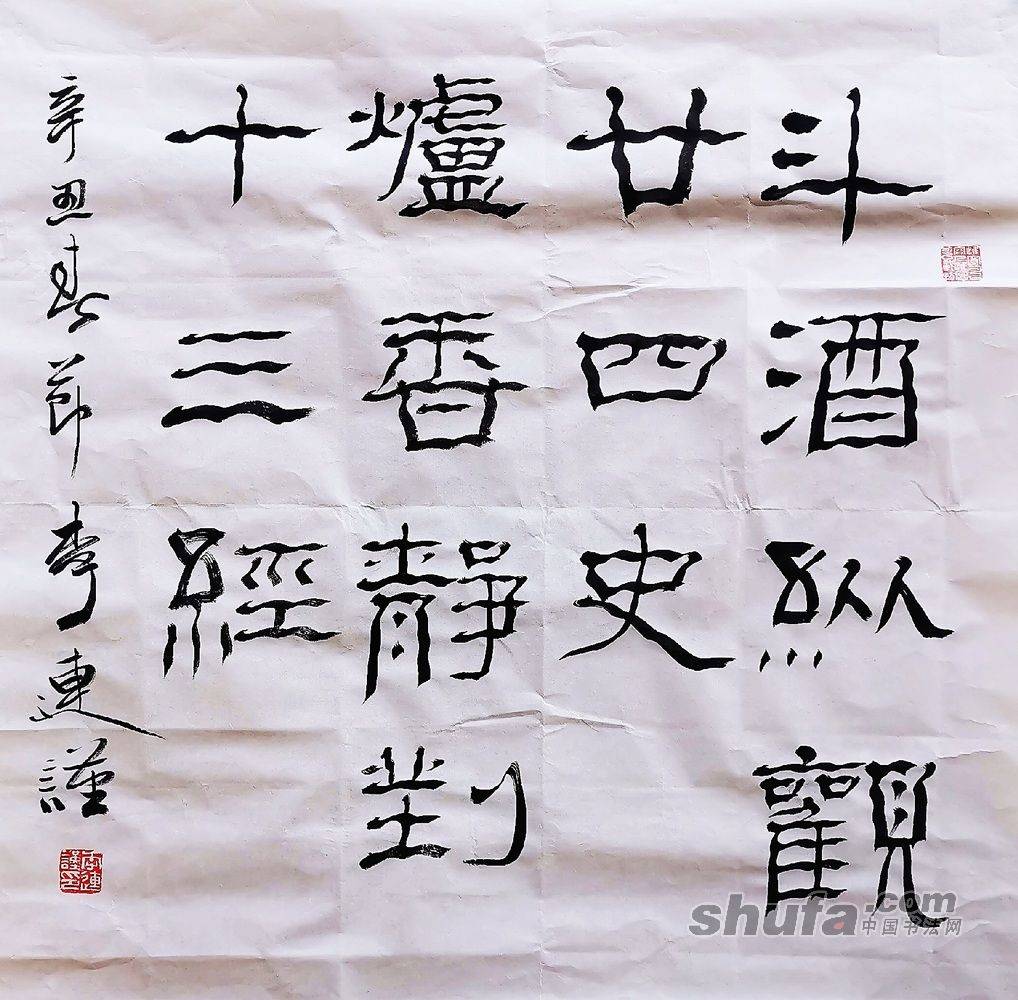 斗酒纵觀
廿四史
爐香靜對
十三經
辛丑春節李連謹
shufa.com
中国书法网